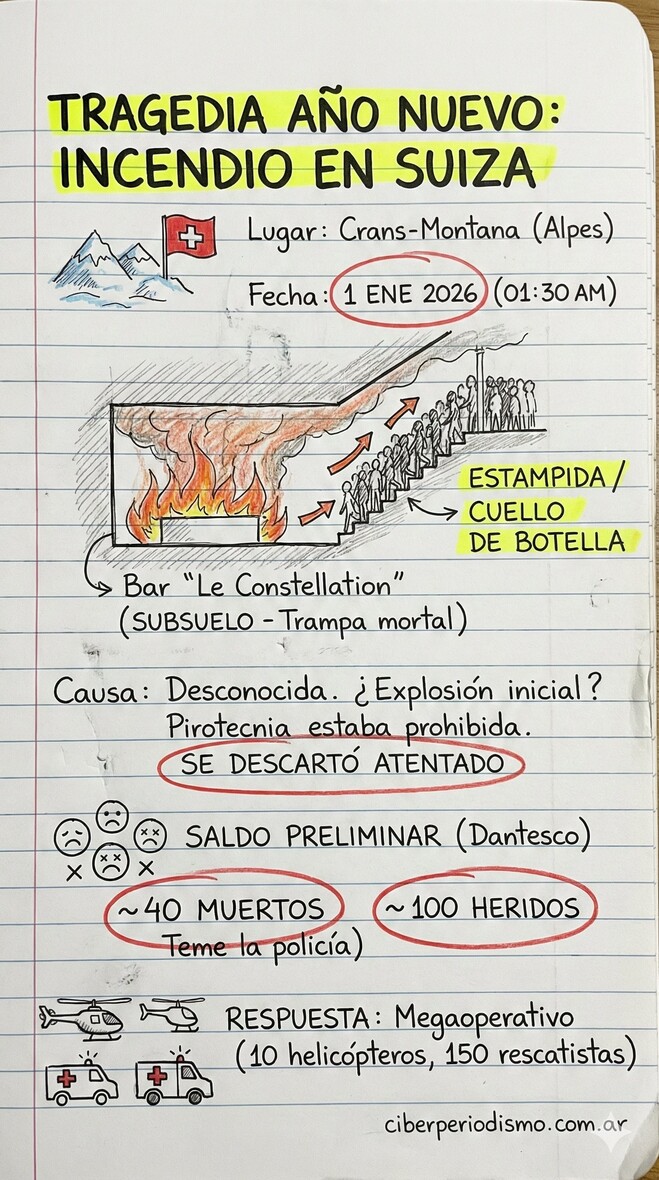 TRAGEDIA AÑO NUEVO:
INCENDIO EN SUIZA
Lugar: Crans-Montana (Alpes)
Fecha: 1 ENE 2026 (01:30 AM)
ESTAMPIDA/
CUELLO
DE BOTELLA
Bar "Le Constellation"
(SUBSUELO - Trampa mortal)
Causa: Desconocida. ¿Explosión inicial?
Pirotecnia estaba prohibida.
SE DESCARTÓ ATENTADO
SALDO PRELIMINAR (Dantesco)
~40 MUERTOS ~100 HERIDOS
Teme la policía)
RESPUESTA: Megaoperativo
(10 helicópteros, 150 rescatistas)
ciberperiodismo.com.ar